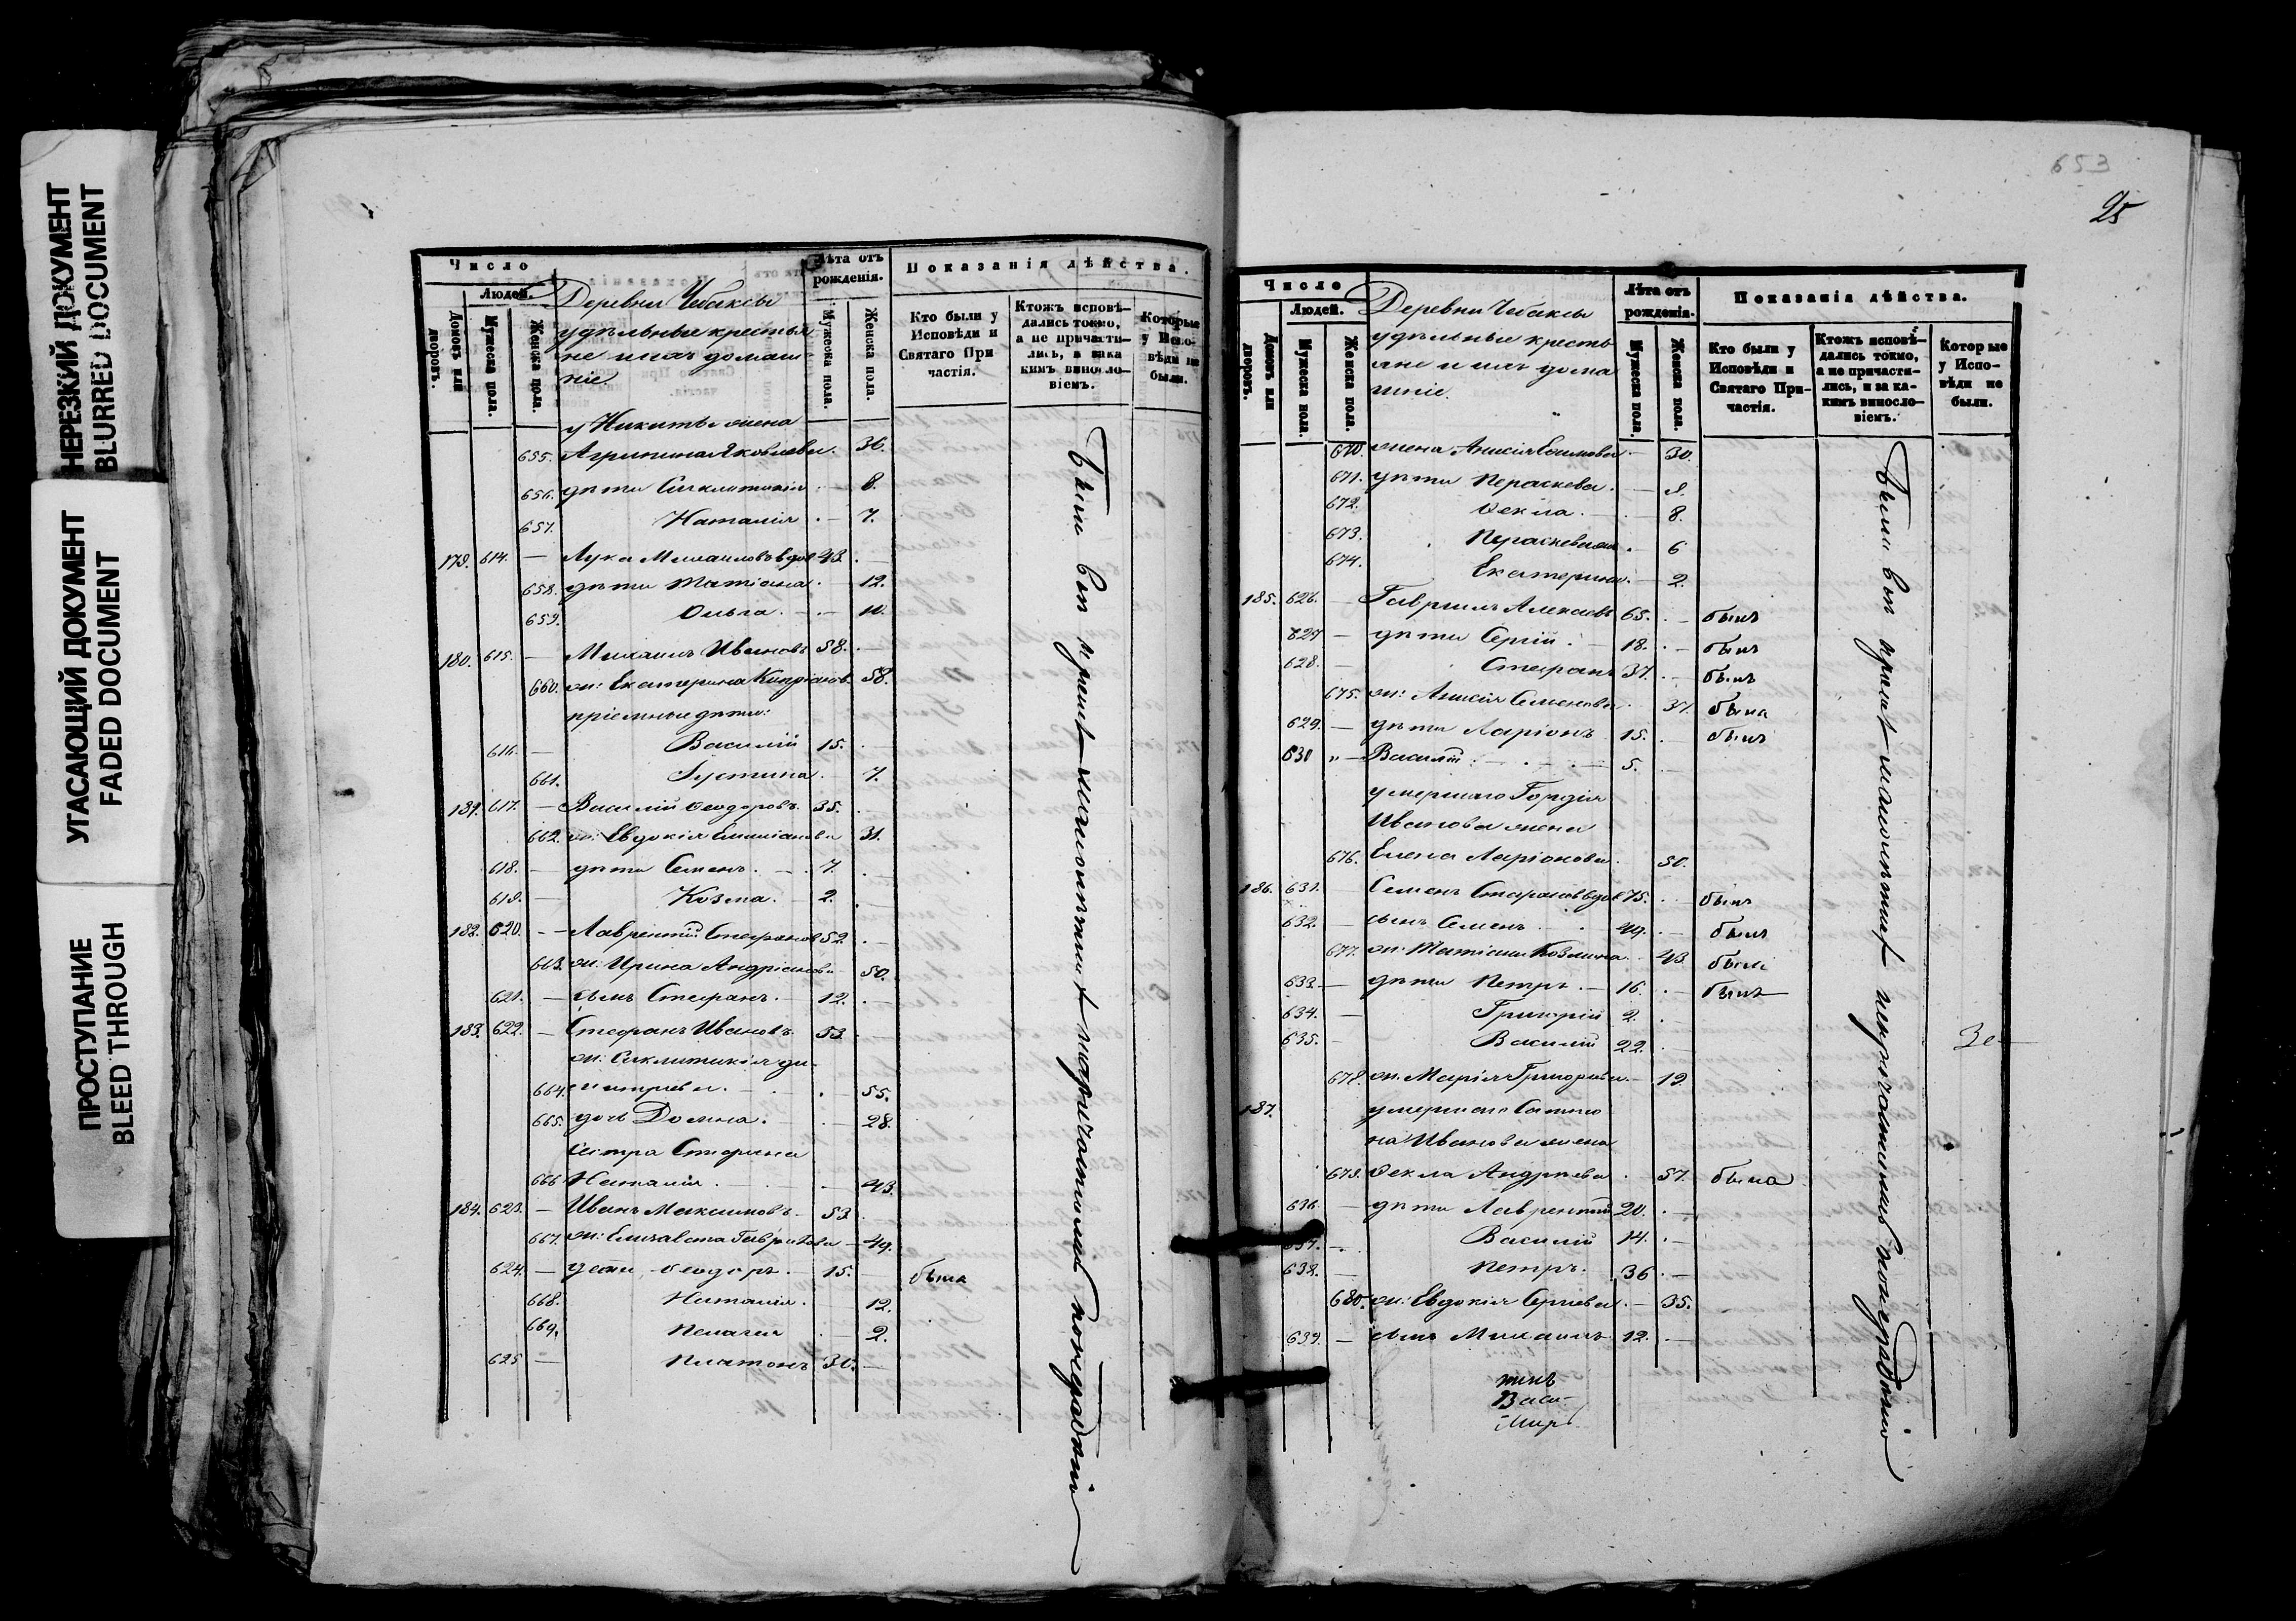 НЕРЕЗКИЙ ДОКУМЕНТ
BLURRED DOCUMENT
УГАСАЮЩИЙ ДОКУМЕНТ
FADED DOCUMENT
ПРОСТУПАНИЕ
BLEED THROUGH
Число
Людей.
Домовъ или дворовъ.
Мужеска пола.
Женска пола.
Деревни Чебаксы
удѣльные крестья
не и ихъ домаш
ніе
Лѣта отъ рожденія.
Мужеска пола.
Женска пола.
Показанія дѣйства.
Кто были у Исповѣди и Святаго При частія.
Ктожъ исповѣ- дались токмо, а не причасти- лись, и зака кимъ винослo- віемъ.
Которые у Испо- вѣди не были.
у Никиты жена
655. Агрипина Яковлева 36.
656. дѣти Сиклитикія 8.
657. Наталія 7.
179. 614. Лука Михаиловъ вдов 43.
658. дѣти Татіана 12.
659. Ольга 10.
180. 615. Михаилъ Ивановъ 58.
660. ж: Екатерина Кипріанов. 58.
пріемные дѣти:
616. Василій 15.
661. Іустина 7.
181. 617. Василій Ѳеодоровъ 35.
662. ж: Евдокія Емиліанова 31.
618. дѣти Семенъ 7.
619. Козма 2.
182. 620. Лаврентій Стефановъ 52.
663. ж: Ирина Андріанова 50.
621. сынъ Стефанъ 12.
183. 622. Стефанъ Ивановъ 53.
ж: Сиклитикія Ди-
664. митріева 55.
665. дочь Домна 28.
сестра Стефана
666 Наталія 43.
184. 623. Иванъ Максимовъ 53
667. ж: Елизавета Гаврилова 49.
624. дети Ѳеодоръ 15. была
668. Наталія 12.
669. Пелагея 2.
625 Платонъ 30.
Были вси кромѣ малолѣтных
653
25
Число
Людей.
Домовъ или дворовъ.
Мужеска пола.
Женска пола.
Деревни Чебаксы
удѣльные кресть
яне и ихъ дома
шніе.
Лѣта отъ рожденія.
Мужеска пола.
Женска пола.
Показанія дѣйства.
Кто были у Исповѣди и Святаго При- частія.
Ктожъ исповѣ- дались токмо, а не причасти- лись, и за ка- кимъ винослo- віемъ.
Которые у Испо- вѣди не были.
670. жена Анисія Ефимова 30.
671. дѣти Параскева
672. Ѳекла 8.
673. Параскева 6
674. Екатерина 2.
185. 626. Гавріилъ Алексѣевъ 65. былъ
627 дѣти Сергій 18. былъ
628. Стефанъ 37. былъ
675. ж: Анисія Семенова 37. была
629. дѣти Ларіонъ 15. былъ
630 Василій 5.
умершаго Гордія
Иванова жена
676. Елена Ларіонова 50.
186. 631. Семенъ Стефановъ вдов 75. былъ
632. сынъ Семенъ 49. былъ
677. ж: Татіана Козмина 43 была
633. дѣти Петръ 16. былъ
634. Григорій 2.
635. Василій 22.
678. ж. Марія Григорьева 19.
187. умершаго
на Иванова жена
679. Ѳекла Андреева 57. была
636. дѣти Лаврентій 20.
637. Василій 14.
638. Петръ 36
680. ж: Евдокія Сергіева 35.
639. сынъ Михаилъ 12.
Были вси кромѣ малолѣтных